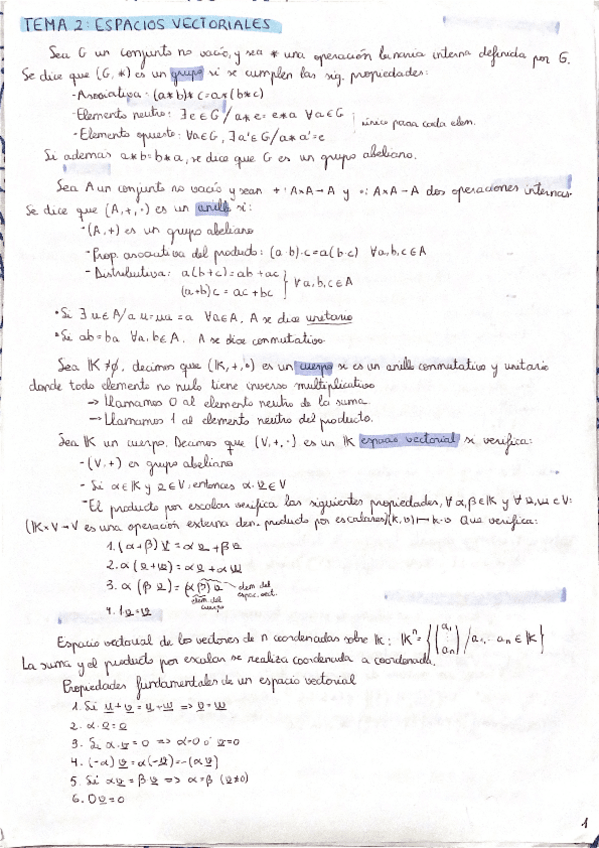 TEMA 2: ESPACIOS VECTORIALES
Sea G un conjunto no vacío, y sea * una operación binaria interna definida por G.
Se dice que (G, *) es un grupo si se cumplen las sig. propiedades:
- Asociativa: (a*b)*c=a*(b*c)
- Elemento neutro: ∃e∈G/a*e=e*a ∀a∈G
- Elemento opuesto: ∀a∈G, ∃a'∈G/a*a'=e
único para cada elem.
Si además a*b=b*a, se dice que G es un grupo abeliano.
Sea A un conjunto no vacío y sean +: A×A→A y ·: A×A→A dos operaciones internas.
Se dice que (A,+,·) es un anillo si:
- (A,+) es un grupo abeliano
- Prop. asociativa del producto: (a·b)·c=a(b·c) ∀a,b,c∈A
- Distributiva: a(b+c)=ab+ac
(a+b)c=ac+bc
∀a,b,c∈A
• Si ∃u∈A/a·u=ua=a ∀a∈A, A se dice unitario
• Si ab=ba ∀a,b∈A. A se dice conmutativo
Sea K≠∅, decimos que (K,+,·) es un cuerpo si es un anillo conmutativo y unitario
donde todo elemento no nulo tiene inverso multiplicativo
→ Llamamos 0 al elemento neutro de la suma.
→ Llamamos 1 al elemento neutro del producto.
Sea K un cuerpo. Decimos que (V,+,·) es un K espacio vectorial si verifica:
- (V,+) es grupo abeliano
- Si α∈K y v∈V, entonces α·v∈V
- El producto por escalar verifica las siguientes propiedades, ∀α,β∈K y ∀v,w∈V:
(K×V→V es una operación externa den. producto por escalares)(k,v)↦k·v Que verifica:
1. (α+β)v=αv+βv
2. α(v+w)=αv+αw
3. α(βv)=(αβ)v
elem del espac. vect.
elem del cuerpo
4. 1v=v
Espacio vectorial de los vectores de n coordenadas sobre K: Kⁿ={(a₁ ⋮ aₙ)/a₁...aₙ∈K}
La suma y el producto por escalar se realiza coordenada a coordenada.
Propiedades fundamentales de un espacio vectorial
1. Si u+v=u+w ⇒ v=w
2. α·0=0
3. Si α·v=0 ⇒ α=0 ó v=0
4. (-α)v=α(-v)=-(αv)
5. Si αv=βv ⇒ α=β (v≠0)
6. 0v=0
1